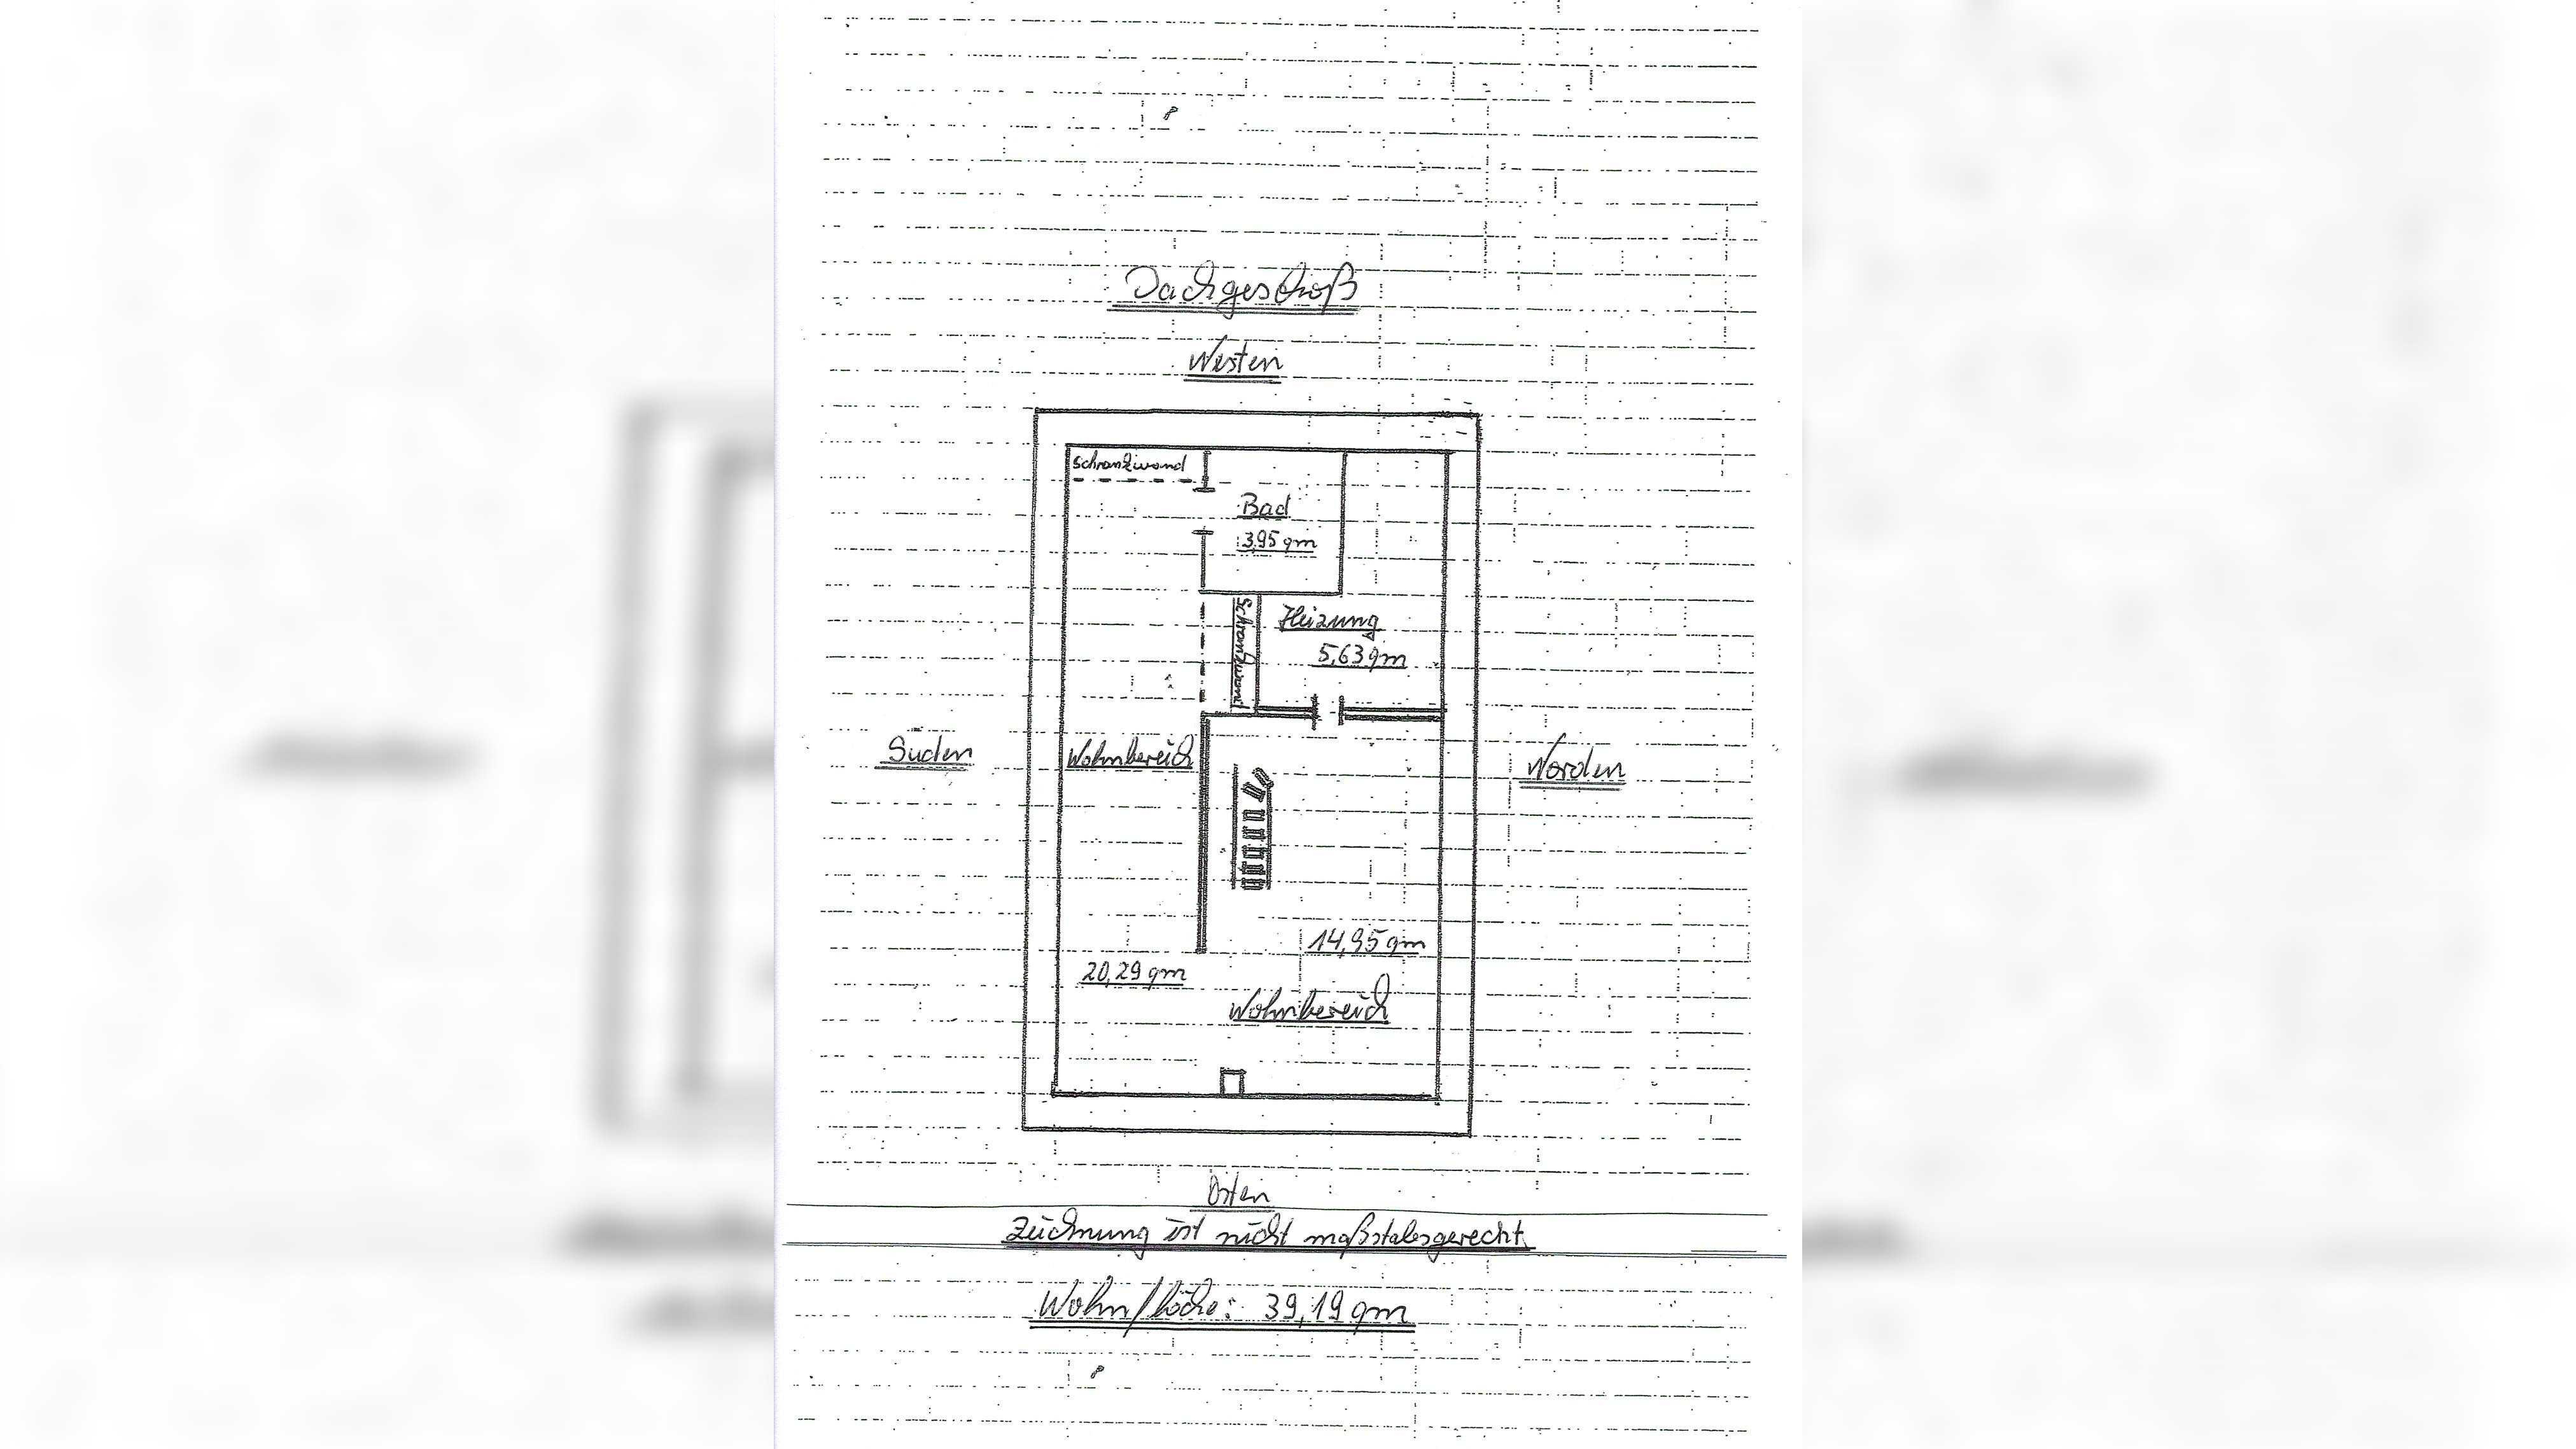 Dachgeschoß
Westen
Schrankwand
Bad
3,95 qm
Schrankwand
Heizung
5,63 qm
Süden
Wohnbereich
Norden
14,95 qm
20,29 qm
Wohnbereich
Osten
Zeichnung ist nicht maßstabsgerecht.
Wohnfläche: 39,19 qm